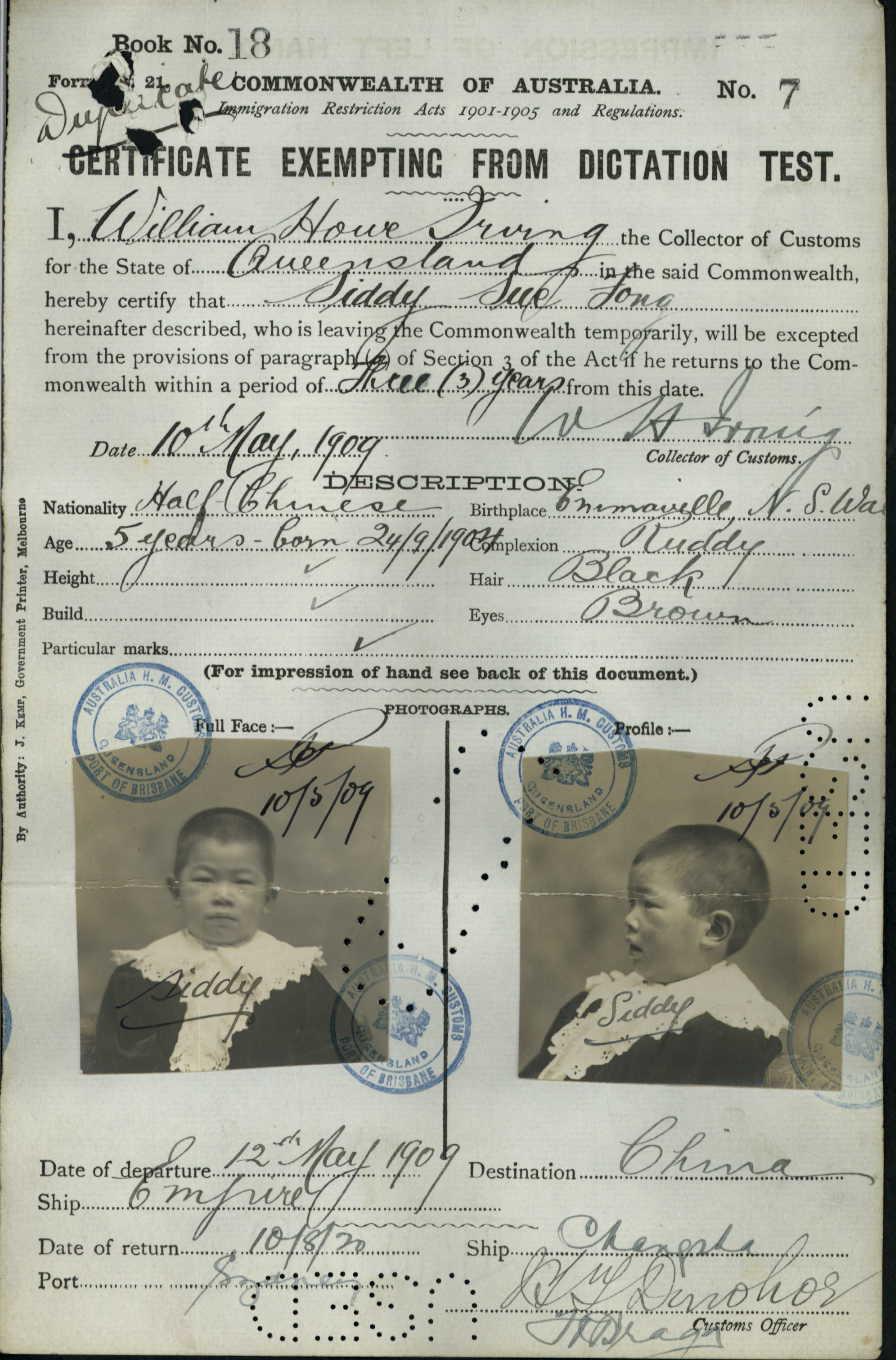 Book No. 18
Form 21.
Duplicate
COMMONWEALTH OF AUSTRALIA. No. 7
Immigration Restriction Acts 1901-1905 and Regulations.
CERTIFICATE EXEMPTING FROM DICTATION TEST.
I, William Howe Irving the Collector of Customs
for the State of Queensland in the said Commonwealth,
hereby certify that Siddy Sue Fong
hereinafter described, who is leaving the Commonwealth temporarily, will be excepted
from the provisions of paragraph (a) of Section 3 of the Act if he returns to the Com-
monwealth within a period of Three (3) years from this date.
W H Irving
Date 10th May, 1909
Collector of Customs.
DESCRIPTION.
Nationality Half Chinese Birthplace Emmaville N. S. Wa
Age 5 years - born 24/9/1904 Complexion Ruddy
Height Hair Black
Build Eyes Brown
Particular marks
(For impression of hand see back of this document.)
PHOTOGRAPHS.
Full Face :— Profile :—
AUSTRALIA H. M. CUSTOMS
QUEENSLAND
PORT OF BRISBANE
AUSTRALIA H. M. CUSTOMS
QUEENSLAND
PORT OF BRISBANE
10/5/09
10/5/09
Siddy
Siddy
AUSTRALIA H. M. CUSTOMS
QUEENSLAND
PORT OF BRISBANE
AUSTRALIA H.
Date of departure 12th May 1909 Destination China
Ship Empire
Date of return 10/8/20 Ship Changsha
Port Sydney
Customs Officer
USED
By Authority: J. KEMP, Government Printer, Melbourne